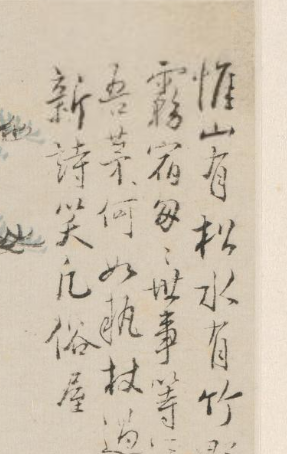 惟山有松水有竹
霧宿匆〻世事等
吾茅何如執杖過
新詩笑凡俗屋